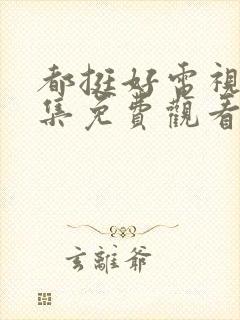 都挺好電視
集免費觀看
玄離爺